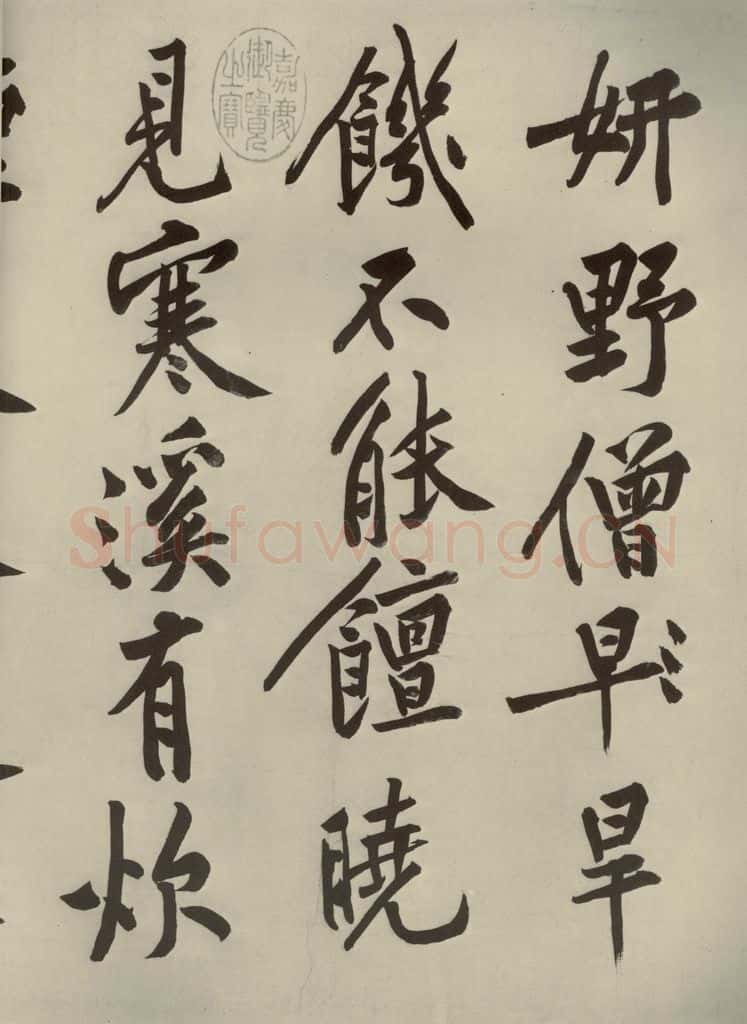 妍野僧早旱
饑不能饘曉
見寒溪有炊
嘉慶御覽之寶
Shufawang.CN